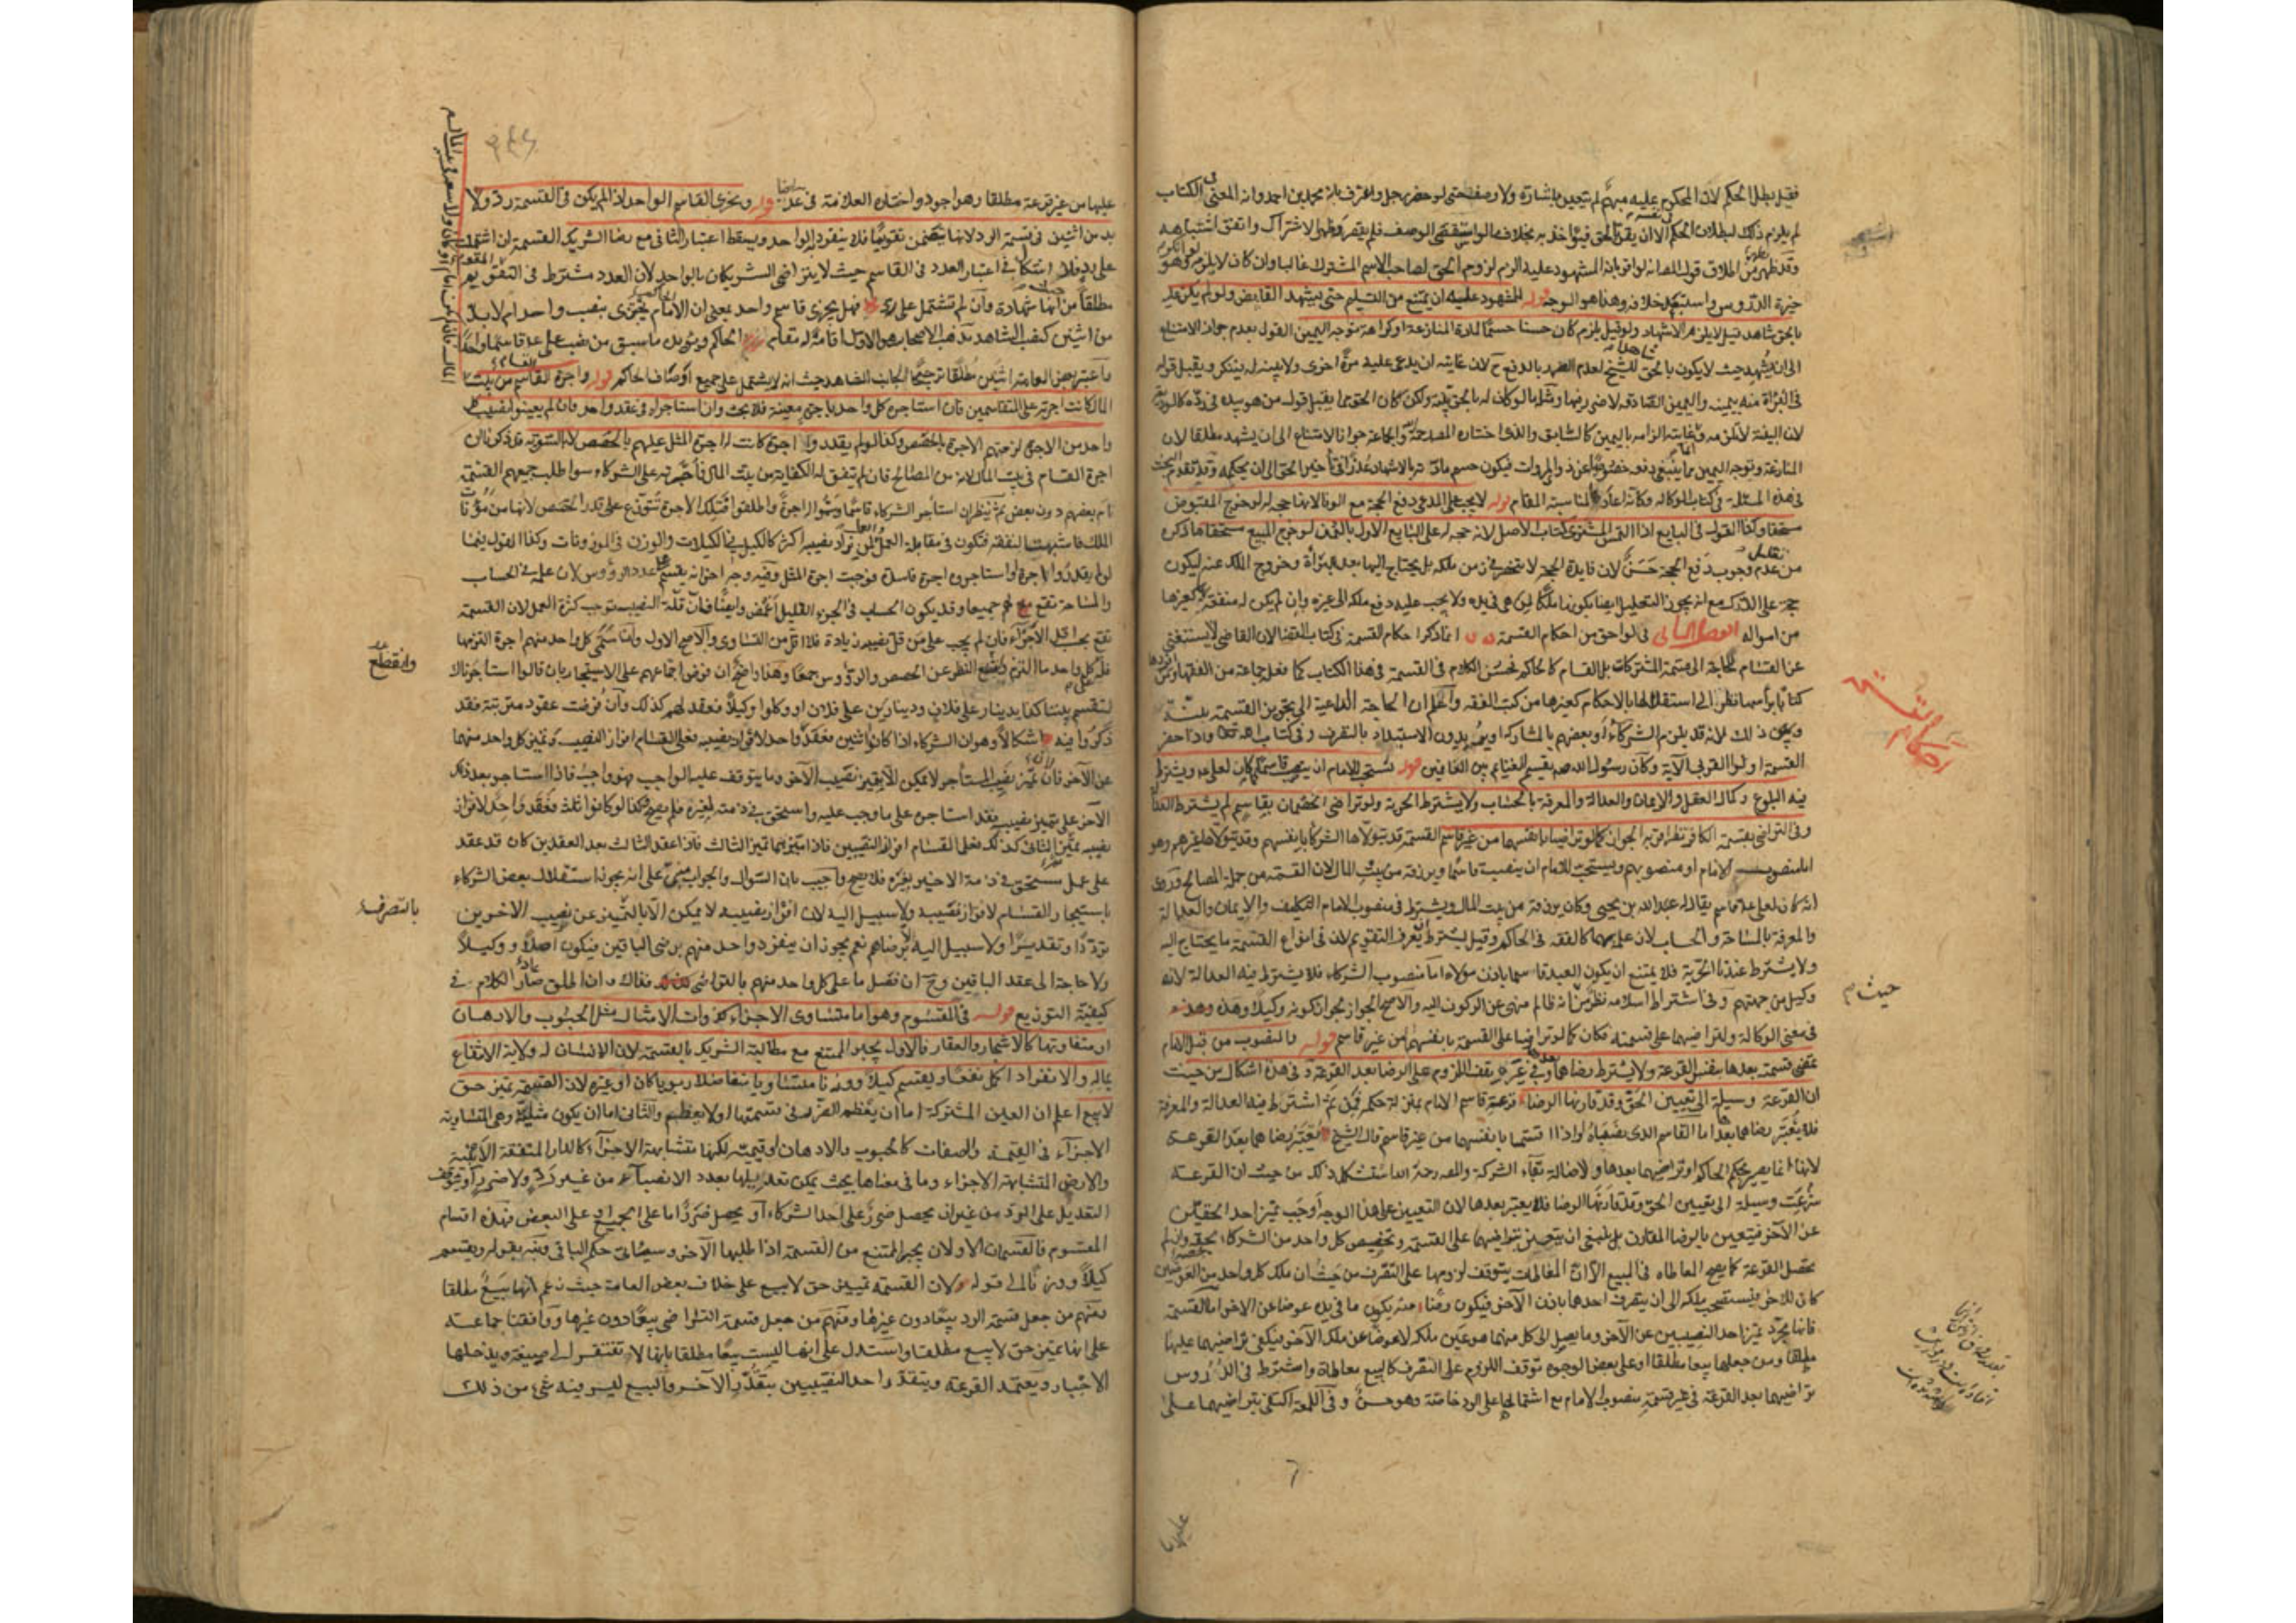 فقيل يبطل الحكم لان المحكوم عليه مبهم لم يتعين باشارة ولا وصف حتى لو حضر رجل واعترف بانه محمد بن احمد وانه المعنى في الكتاب
لم يلزم ذلك لبطلان الحكم الا ان يقر بالحق فيؤاخذ به بخلاف ما لو استقصى الوصف فلم يقصر وظهر الاشتراك واتفق اشتباهه
وقد ظهر من اطلاق قول المص انه لو اقر بانه المشهود عليه الزم لزوم الحق لصاحب الاسم المشترك غالبا وان كان لا يلزم لو انكر وهو
خيرة الدروس واستشكل خلافه وهذا هو الوجه قوله للمشهود عليه ان يمتنع من التسليم حتى يشهد القابض ولو لم يكن عليه
بالحق شاهد قيل لا يلزم الاشهاد ولو قيل يلزم كان حسنا حسما لمادة المنازعة او كراهة توجه اليمين القول بعدم جواز الامتناع
الى ان يشهد حيث لا يكون بالحق شاهد للشيخ لعدم الضرر بالدفع ح لان غايته ان يدعى عليه مرة اخرى ولا بينة له فينكر ويقبل قوله
في البراءة منه بيمينه واليمين الصادقة لا ضرر فيها
لان البينة لا تلزمه وغايته الزامه باليمين كالسابق والذي اختاره المص رحمه الله والجماعة جواز الامتناع الى ان يشهد مطلقا لان
المنازعة وتوجه اليمين مما ينبغي دفعه خصوصا عن ذوي المروات فيكون حسم مادته بالاشهاد عذرا في تأخير الحق الى ان يحكمه وقد تقدم البحث
في هذه المسئلة في كتاب الوكالة وكانه اعادها لمناسبة المقام قوله لا يجب على المدعي دفع الحجة مع الوفا لانها حجة له لو خرج المقبوض
مستحقا وكذا القول في البايع اذا التمس المشتري كتاب الاصل لانه حجة له على البايع الاول بالثمن لو خرج المبيع مستحقا ما ذكره
من عدم وجوب دفع الحجة حسن لان فايدة الحجة لا تنحصر في زمن ملكه بل يحتاج اليها بعد البراءة وخروج الملك عنه ليكون
حجة على الدرك مع انه يجوز التحليل ايضا بكونها ملكا لمن هي في يده ولا يجب عليه دفع ملكه الى غيره وان لم يكن له منفعة كغيرها
من امواله الفصل الثاني في لواحق من احكام القسمة انما ذكر احكام القسمة في كتاب القضا لان القاضي لا يستغني
عن القسام للحاجة الى قسمة المشتركات بل القسام كالحاكم فحسن الكلام في القسمة في هذا الكتاب كما فعله جماعة من الفقهاء ومن افردها
كتابا براسها نظر الى استقلالها بالاحكام كغيرها من كتب الفقه واعلم ان الحاجة الداعية الى تجويز القسمة بينة
لانه قد يتبرم الشركاء او بعضهم بالمشاركة او يريدون الاستبداد بالتصرف وفي كتاب الله تعالى واذا حضر
القسمة اولوا القربى الآية وكان رسول الله صه يقسم الغنايم بين الغانمين قوله يستحب للامام ان ينصب قاسما كما كان لعلي ع ويشترط
فيه البلوغ وكمال العقل والايمان والعدالة والمعرفة بالحساب ولا يشترط الحرية ولو تراضى الخصمان بقاسم لم يشترط العدالة
وفي التراضي بقسمة الكافر نظر اقربه الجواز كما لو تراضيا بانفسهما من غير قاسم القسمة قد يتولاها الشركا بانفسهم وقد يتولاها غيرهم وهو
اما منصوب الامام او منصوبهم ويستحب للامام ان ينصب قاسما ويرزقه من بيت المال لان القسمة من جملة المصالح وروي
انه كان لعلي ع قاسم يقال له عبد الله بن يحيى وكان يرزقه من بيت المال ويشترط في منصوب الامام التكليف والايمان والعدالة
والمعرفة بالمساحة والحساب لان علمه بهما كالفقه في الحاكم وقيل يشترط ان يعرف التقويم لان في انواع القسمة ما يحتاج اليه
ولا يشترط عندنا الحرية فلا يمتنع ان يكون العبد قاسما باذن مولاه اما منصوب الشركاء فلا يشترط فيه العدالة لانه
وكيل من جهتهم وفي اشتراط اسلامه نظر من انه ظالم منهي عن الركون اليه والاصح الجواز لجواز كونه وكيلا وهذه
في معنى الوكالة ولتراضيهما على قسمته فكان كما لو تراضيا على القسمة بانفسهما من غير قاسم قوله والمنصوب من قبل الامام
تمضي قسمته بعدها بنفس القرعة ولا يشترط رضاهما بعدها وفي غيره يقف اللزوم على الرضا بعد القرعة وفي هذا اشكال من حيث
ان القرعة وسيلة الى تعيين الحق وقد قارنها الرضا قرعة قاسم الامام بمنزلة حكمه فمن ثم اشترط فيه العدالة والمعرفة
فلا يعتبر رضاهما بعدها اما القاسم الذي ينصبانه او اذا اقتسما بانفسهما من غير قاسم قال الشيخ يعتبر رضاهما بعد القرعة
لانها انما يصير بحكم الحاكم او تراضيهما بعدها ولاصالة بقاء الشركة والمص رحمه الله استشكل ذلك من حيث ان القرعة
شرعت وسيلة الى تعيين الحق وقد قارنها الرضا فلا يعتبر بعدها لان التعيين على هذا الوجه اوجب تميز احد الحقين
عن الآخر فيتعين بالرضا المقارن بل ينبغي ان يتعين بتراضيهما على القسمة وتخصيص كل واحد من الشركاء بحقه وان لم
تحصل القرعة كما يصح المعاطاة في البيع الا ان المعاطاة يتوقف لزومها على التصرف من حيث ان ملك كل واحد من العوضين
كان للآخر فيستصحب ملكه الى ان يتصرف احدهما باذن الآخر فيكون رضا منه بكون ما في يده عوضا عن الآخر اما القسمة
فانها مجرد تميز احد النصيبين عن الآخر وما يصل الى كل منهما هو عين ملكه لا عوضا عن ملك الآخر فيكفي تراضيهما عليها
ومن جعلها بيعا مطلقا او على بعض الوجوه توقف اللزوم على التصرف كالبيع معاطاة واشترط في الدروس
تراضيهما بعد القرعة في غير قسمة منصوب الامام مع اشتمالها على الرد خاصة وهو حسن وفي اللمعة اكتفى بتراضيهما على
عليها من
حيث م
عليها من غير قرعة مطلقا وهو اجود واختاره العلامة في عد ايضا قوله ويجزي القاسم الواحد اذا لم يكن في القسمة رد ولا
بد من اثنين في قسمة الرد لانها يتضمن تقويما فلا ينفرد به الواحد ويسقط اعتبار الثاني مع رضا الشريك القسمة ان اشتملت
على رد فلا اشكال في اعتبار العدد في القاسم حيث لا يتراضى الشريكان بالواحد لان العدد مشترط في التقويم
مطلقا من حيث انها شهادة وان لم تشتمل على رد فهل يجزي قاسم واحد بمعنى ان الامام يجتزي بنصب واحد ام لا بد
من اثنين كنصب الشاهد مذهب الاصحاب هو الاول اقامة له مقام الحاكم ويؤيده ما سبق من نصب علي ع قاسما واحدا
واعتبر بعض العامة اثنين مطلقا ترجيحا لجانب الشاهد حيث انه لا يشتمل على جميع اوصاف الحاكم قوله واجرة القسام من بيت
المال كانت اجرته على المتقاسمين فان استأجره كل واحد باجرة معينة فلا بحث وان استأجراه في عقد واحد فان لم يعينوا نصيب كل
واحد من الاجرة لزمتهم الاجرة بالحصص وكذا لو لم يقدروا اجرة كانت له اجرة المثل عليهم بالحصص لا بالسوية قد ذكرنا ان
اجرة القسام في بيت المال لانه من المصالح فان لم يتفق له الكفاية من بيت المال فاجرته على الشركاء سوا طلب جميعهم القسمة
ام بعضهم دون بعض ثم ينظر ان استأجر الشركاء قاسما وسموا له اجرة واطلقوا فتلك الاجرة تتوزع على قدر الحصص لانها من مؤنات
الملك فاشبهت النفقة فتكون في مقابلة العمل لمن يزاد نصيبه اكثر كالكيل في المكيلات والوزن في الموزونات وكذا القول فيما
لو لم يقدروا الاجرة او استأجروه اجرة فاسدة فوجبت اجرة المثل وفيه وجه اخر انه يقسم على عدد الرؤوس لان عمله في الحساب
والمساحة تقع لهم جميعا وقد يكون الحساب في الجزء القليل اغمض وايضا فان قلة النصيب توجب كثرة العمل لان القسمة
تقع بحسب اقل الاجزاء فان لم يجب على من قل نصيبه زيادة فلا اقل من التساوي والاصح الاول واما ان سمى كل واحد منهم اجرة التزمها
فله على كل واحد ما التزم وانقطع النظر عن الحصص والرؤوس جميعا وهذا واضح ان فرض اجتماعهم على الاستيجار بان قالوا استأجرناك
لتقسم بيننا كذا بدينار على فلان ودينارين على فلان او وكلوا وكيلا فعقد لهم كذلك وان فرضت عقود مترتبة فقد
ذكروا فيه اشكالا وهو ان الشركاء اذا كانوا اثنين فعقد واحد لافراز نصيبه فعلى القسام افراز النصيب وتميز كل واحد منهما
عن الآخر لان تميز نصيب المستأجر لا يمكن الا بتميز نصيب الآخر وما يتوقف عليه الواجب فهو واجب فاذا استأجر بعد ذلك
الآخر على تميز نصيبه فقد استأجره على ما وجب عليه واستحق في ذمته لغيره فلم يصح وكذا لو كانوا ثلثة فعقد واحد لافراز
نصيبه ثم الثاني كذلك فعلى القسام افراز النصيبين فاذا تميز نصيبهما تميز الثالث فاذا عقد الثالث بعد العقدين كان قد عقد
على عمل مستحق في ذمة الاجير لغيره فلا يصح واجيب بان السؤال والجواب مبني على انه يجوز استقلال بعض الشركاء
باستيجار القسام لافراز نصيبه ولا سبيل اليه لان افراز نصيبه لا يمكن الا بالتميز عن نصيب الاخرين
ترددا وتقديرا ولا سبيل اليه الا برضاهم نعم يجوز ان ينفرد واحد منهم برضى الباقين فيكون اصلا ووكيلا
ولا حاجة الى عقد الباقين وح ان فصل ما على كل واحد منهم بالتراضي فذاك وان اطلق عاد الكلام في
كيفية التوزيع قوله في المقسوم وهو اما متساوي الاجزاء كذوات الامثال مثل الحبوب والادهان
او متفاوتها كالاشجار والعقار فالاول يجبر الممتنع مع مطالبة الشريك بالقسمة لان الانسان له ولاية الانتفاع
بماله والانفراد اكمل نفعا ويقسم كيلا ووزنا متساويا ومتفاضلا ربويا كان او غيره لان القسمة تميز حق
لا بيع اعلم ان العين المشتركة اما ان يعظم الضرر في قسمتها او لا يعظم والثاني اما ان يكون مثلية وهي المتساوية
الاجزاء في القيمة والصفات كالحبوب والادهان او قيمية لكنها متشابهة الاجزاء كالدار المتفقة الابنية
والارض المتشابهة الاجزاء وما في معناها بحيث يمكن تعديلها بعدد الانصباء من غير رد ولا ضرر او يتوقف
التعديل على الرد من غير ان يحصل ضرر على احد الشركاء او يحصل ضرر اما على الجميع او على البعض فهذه اقسام
المقسوم فالقسمان الاولان يجبر الممتنع من القسمة اذا طلبها الآخر وسيأتي حكم الباقي ونبه بقوله ويقسم
كيلا ووزنا الى قوله لان القسمة تميز حق لا بيع على خلاف بعض العامة حيث زعم انها بيع مطلقا
ومنهم من جعل قسمة الرد بيعا دون غيرها ومنهم من جعل قسمة التراضي بيعا دون غيرها ووافقنا جماعة
على انها تميز حق لا بيع مطلقا واستدل على انها ليست بيعا مطلقا بانها لا تفتقر الى صيغة ويدخلها
الاجبار ويعتمد القرعة ويتقدر احد النصيبين بتقدر الآخر والبيع ليس فيه شئ من ذلك
وانقطع
بالتصرف